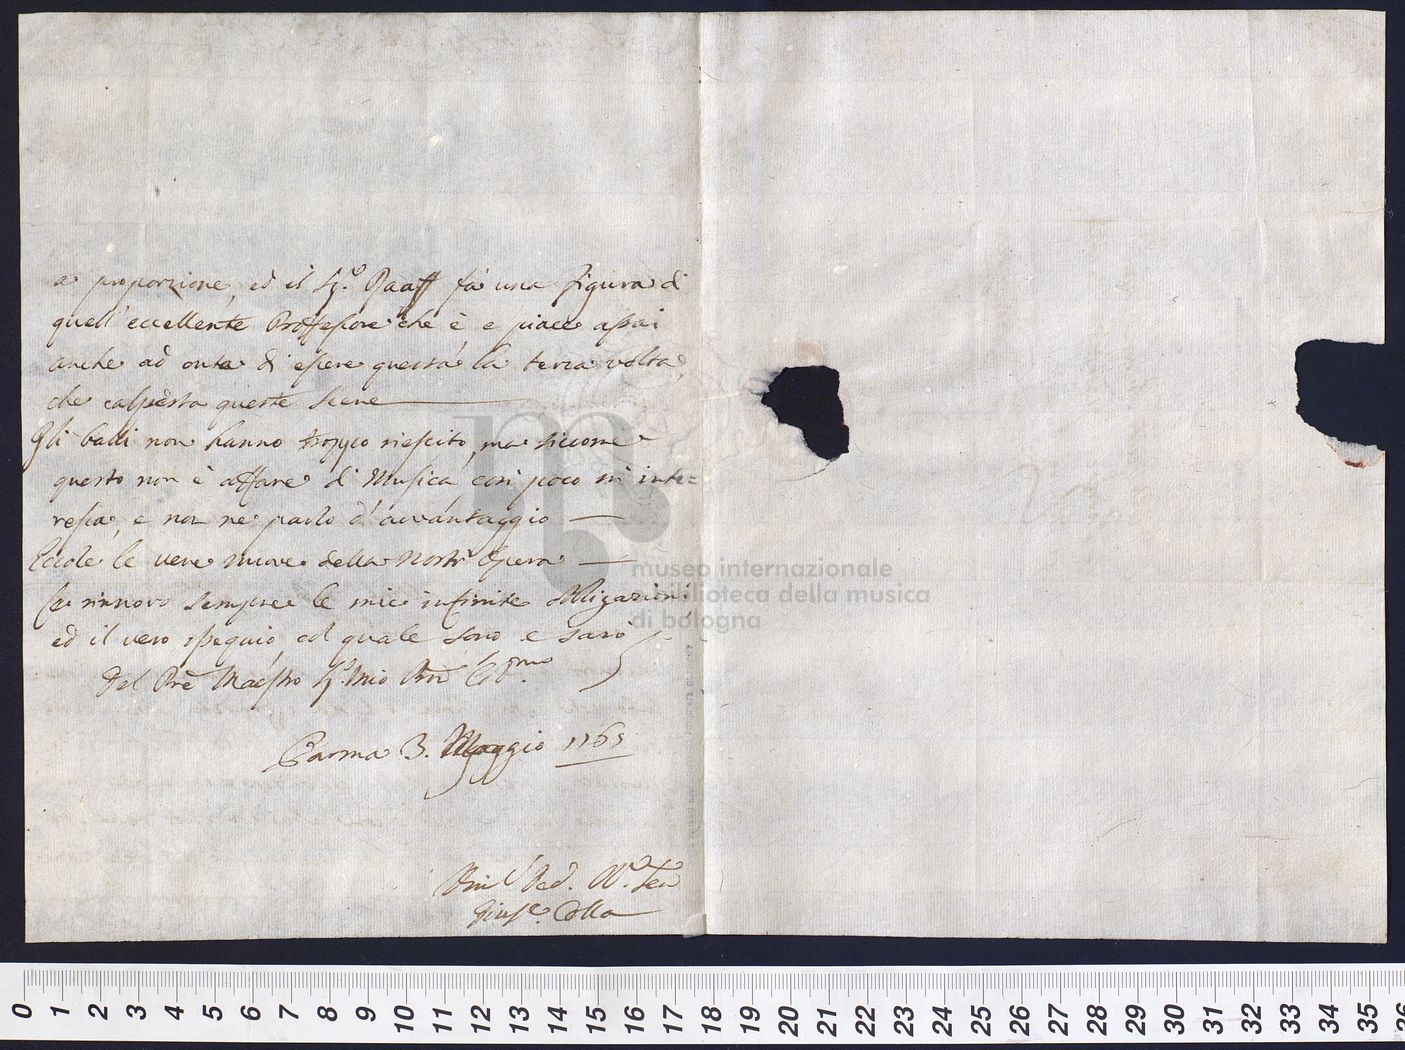 a proporzione, ed il Sig.r Raaff fà una figura di
quell'eccellente Proffessore che è e piace assai
anche ad onta di essere questa la terza volta,
che calpesta queste scene
Gli balli non hanno troppo riescito, ma siccome
questo non è affare di Musica così poco m'inte=
ressa, e non ne parlo d'avvantaggio
Eccole le vere nuove della nostr'Opera
Le rinnovo sempre le mie infinite obbligazioni,
ed il vero ossequio, col quale sono e sarò
Del Pre Maestro Sig.r Mio Riv. Col.mo
Parma 3. Maggio 1765
Giuse. Colla
museo internazionale
e biblioteca della musica
di bologna
0 1 2 3 4 5 6 7 8 9 10 11 12 13 14 15 16 17 18 19 20 21 22 23 24 25 26 27 28 29 30 31 32 33 34 35 36